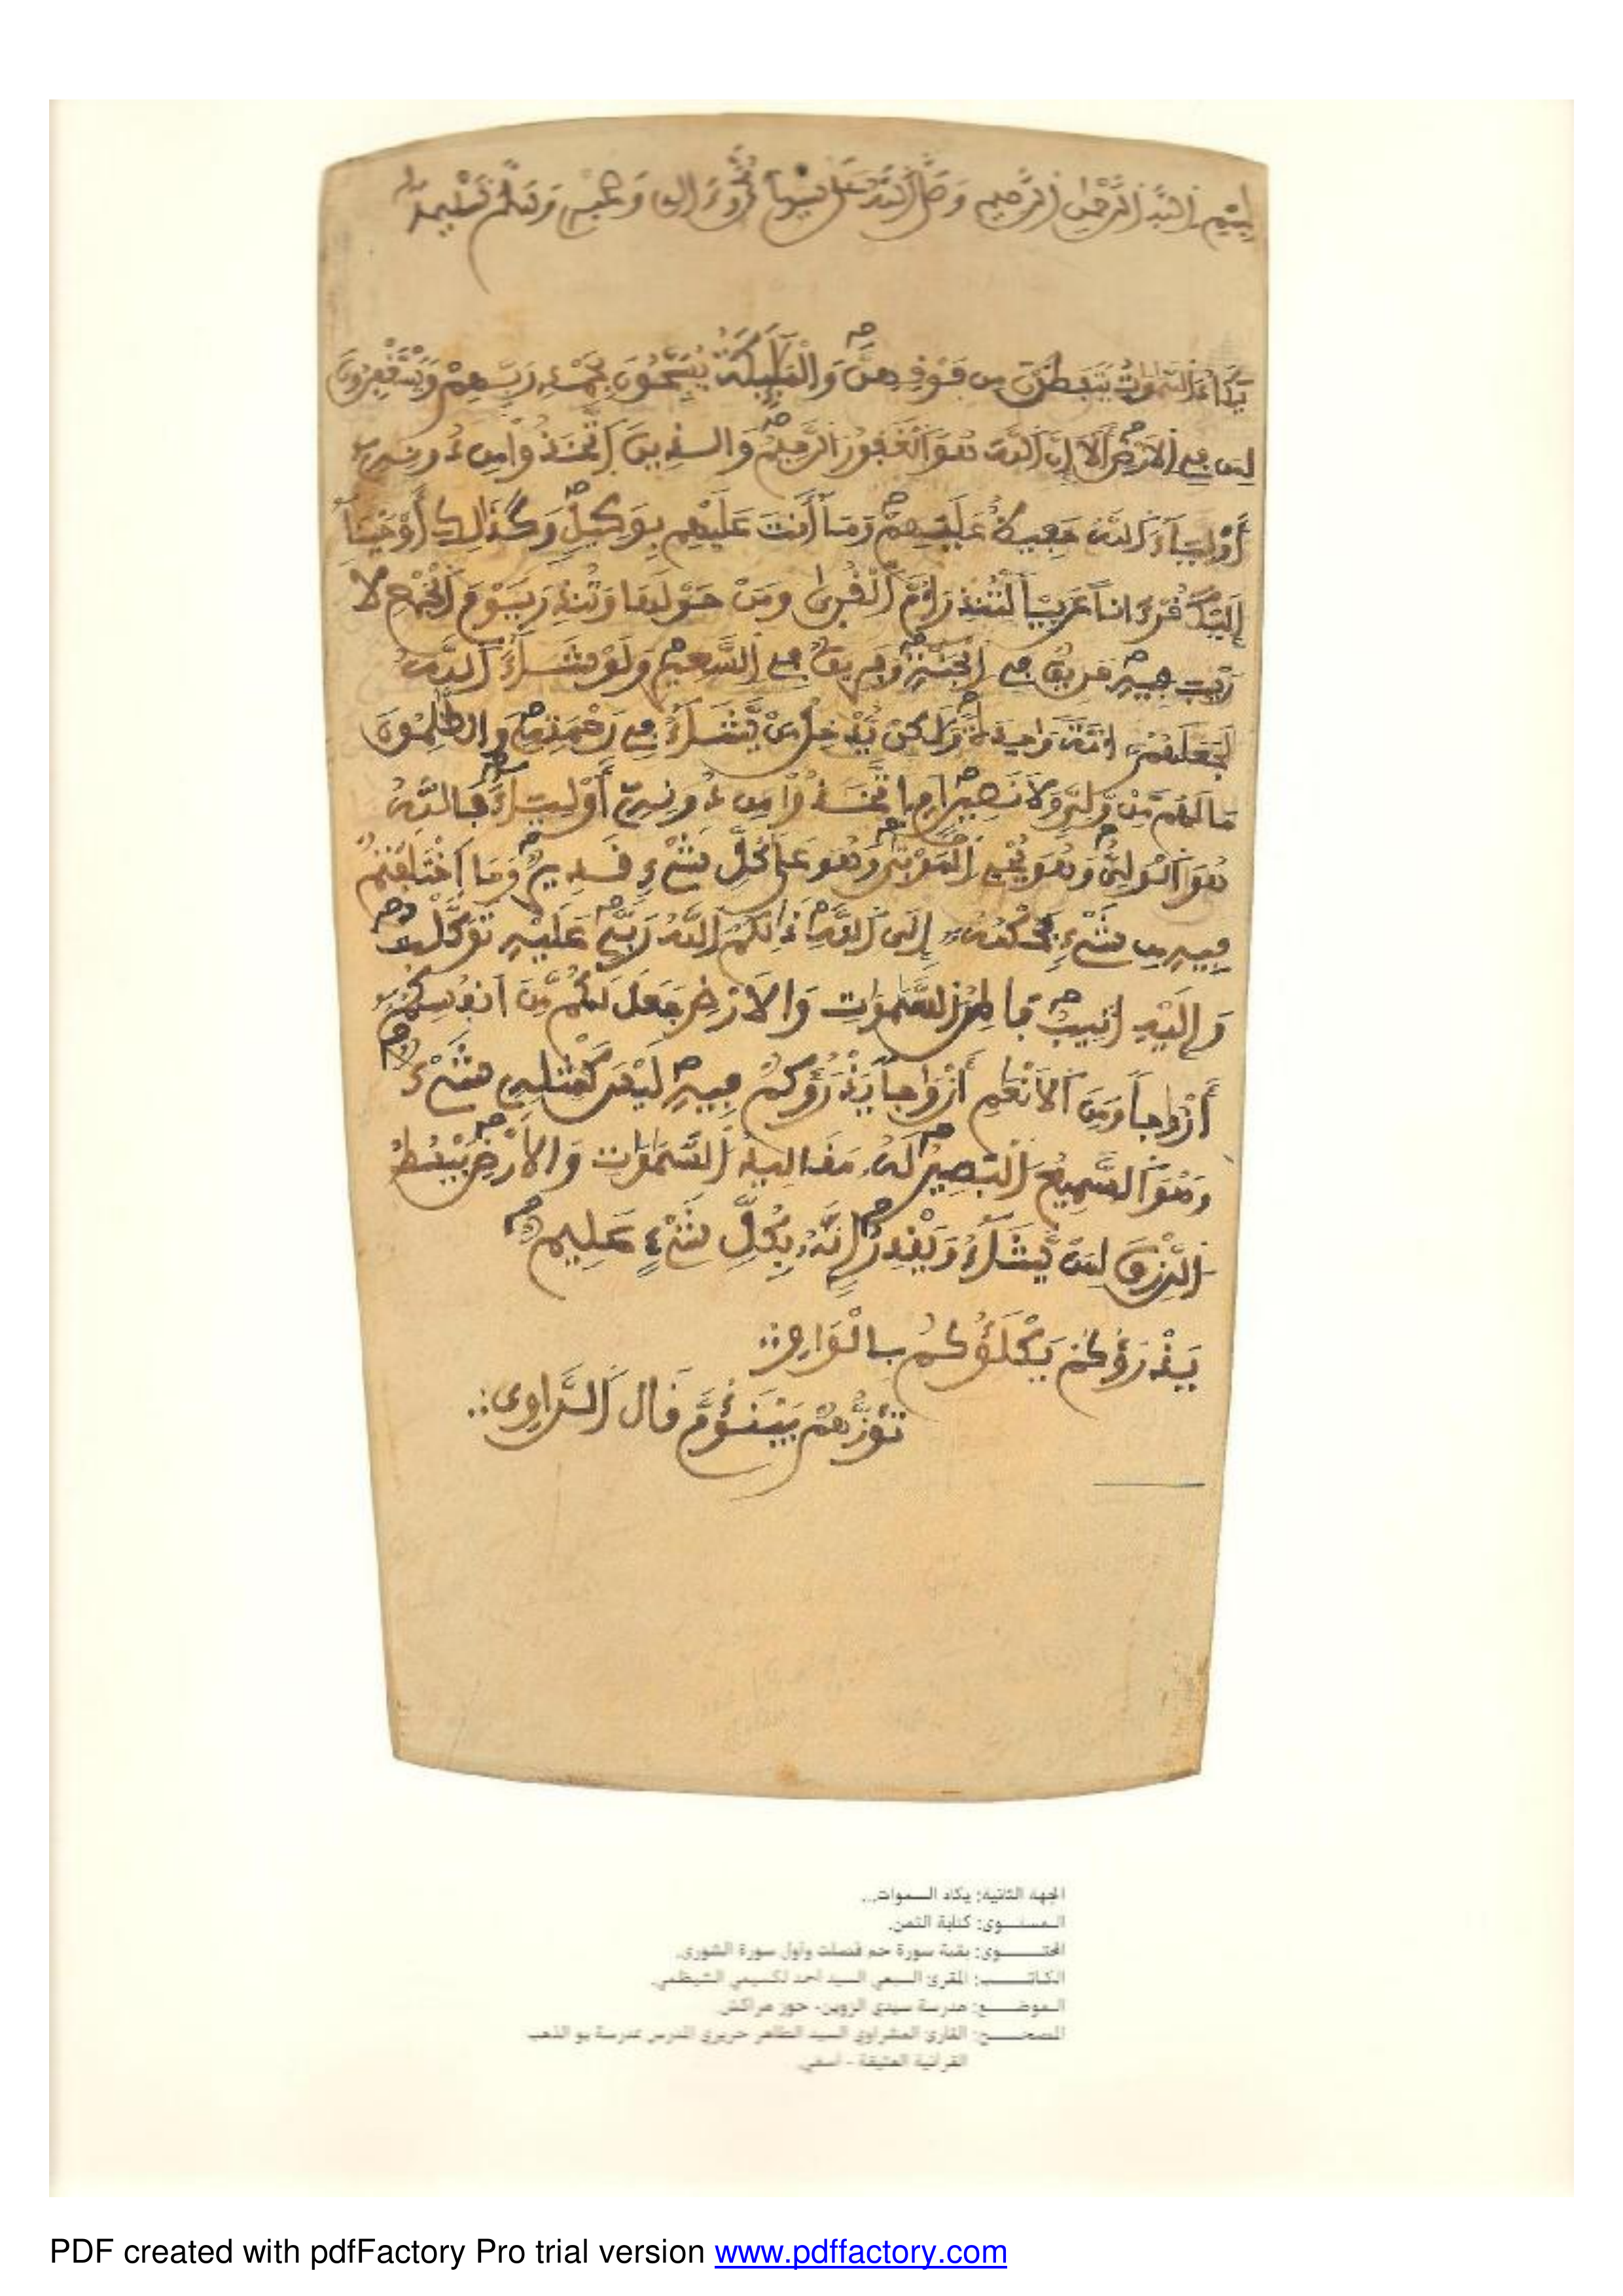 بِسْمِ اِللَّهِ اِلرَّحْمَٰنِ اِلرَّحِيمِ وَصَلَّى اَللَّهُ عَلَى سَيِّدِنَا مُحَمَّدٍ وَءَالِهِ وَصَحْبِهِ وَسَلَّمَ تَسْلِيماً
يَكَادُ اُلسَّمَٰوَٰتُ يَتَفَطَّرْنَ مِن فَوْقِهِنَّ وَالْمَلَٰئِكَةُ يُسَبِّحُونَ بِحَمْدِ رَبِّهِمْ وَيَسْتَغْفِرُونَ
لِمَن فِے اِلَارْضِ أَلَا إِنَّ اَللَّهَ هُوَ اَلْغَفُورُ اُلرَّحِيمُ وَالذِينَ اَتَّخَذُواْ مِن دُونِهِۦ
أَوْلِيَآءَ اَللَّهُ حَفِيظٌ عَلَيْهِمْ وَمَآ أَنتَ عَلَيْهِم بِوَكِيلٍ وَكَذَٰلِكَ أَوْحَيْنَآ
إِلَيْكَ قُرْءَاناً عَرَبِيّاً لِّتُنذِرَ أُمَّ اَلْقُرَىٰ وَمَنْ حَوْلَهَا وَتُنذِرَ يَوْمَ اَلْجَمْعِ لَا
رَيْبَ فِيهِ فَرِيقٌ فِے اِلْجَنَّةِ وَفَرِيقٌ فِے اِلسَّعِيرِ وَلَوْ شَآءَ اَللَّهُ
لَجَعَلَهُمُۥٓ أُمَّةً وَٰحِدَةً وَلَٰكِنْ يُّدْخِلُ مَنْ يَّشَآءُ فِے رَحْمَتِهِۦ وَالظَّٰلِمُونَ
مَا لَهُم مِّنْ وَّلِيٍّ وَلَا نَصِيرٍ اَمِ اِتَّخَذُواْ مِن دُونِهِۦٓ أَوْلِيَآءَ فَاللَّهُ
هُوَ اَلْوَلِيُّ وَهُوَ يُحْيِ اِلْمَوْتَىٰ وَهُوَ عَلَىٰ كُلِّ شَےْءٍ قَدِيرٌ وَمَا اَخْتَلَفْتُمْ
فِيهِ مِن شَےْءٍ فَحُكْمُهُۥٓ إِلَى اَللَّهِ ذَٰلِكُمُ اُللَّهُ رَبِّے عَلَيْهِ تَوَكَّلْتُ
وَإِلَيْهِ أُنِيبُ فَاطِرُ اُلسَّمَٰوَٰتِ وَالَارْضِ جَعَلَ لَكُم مِّنَ اَنفُسِكُمُۥٓ
أَزْوَٰجاً وَمِنَ اَلَانْعَٰمِ أَزْوَٰجاً يَذْرَؤُكُمْ فِيهِ لَيْسَ كَمِثْلِهِۦ شَےْءٌ
وَهُوَ اَلسَّمِيعُ اُلْبَصِيرُ لَهُۥ مَقَالِيدُ اُلسَّمَٰوَٰتِ وَالَارْضِ يَبْسُطُ
اُلرِّزْقَ لِمَنْ يَّشَآءُ وَيَقْدِرُ إِنَّهُۥ بِكُلِّ شَےْءٍ عَلِيمٌ
يَذْرَؤُكُمْ يَكْلَؤُكُمْ بِالْوَاوِ
تَؤُزُّهُمْ يَبْنَؤُمَّ قَالَ اَلرَّاوِى
الجهة الثانية: يكاد السموات...
المستوى: كتابة الثمن.
المحتوى: بقية سورة حم فصلت وأول سورة الشورى.
الكاتب: المقرئ السبعي السيد أحمد لكسيمي الشيظمي.
الموضع: مدرسة سيدي الزوين- حوز مراكش.
المصحح: القارئ العشراوي السيد الطاهر حريري المدرس بمدرسة بو الذهب
القرآنية العتيقة - أسفي.
PDF created with pdfFactory Pro trial version www.pdffactory.com